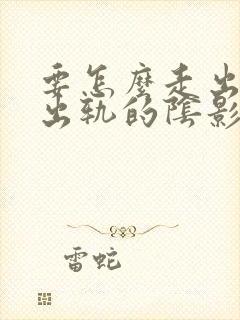 要怎麼走出
出軌的陰影
雷蛇